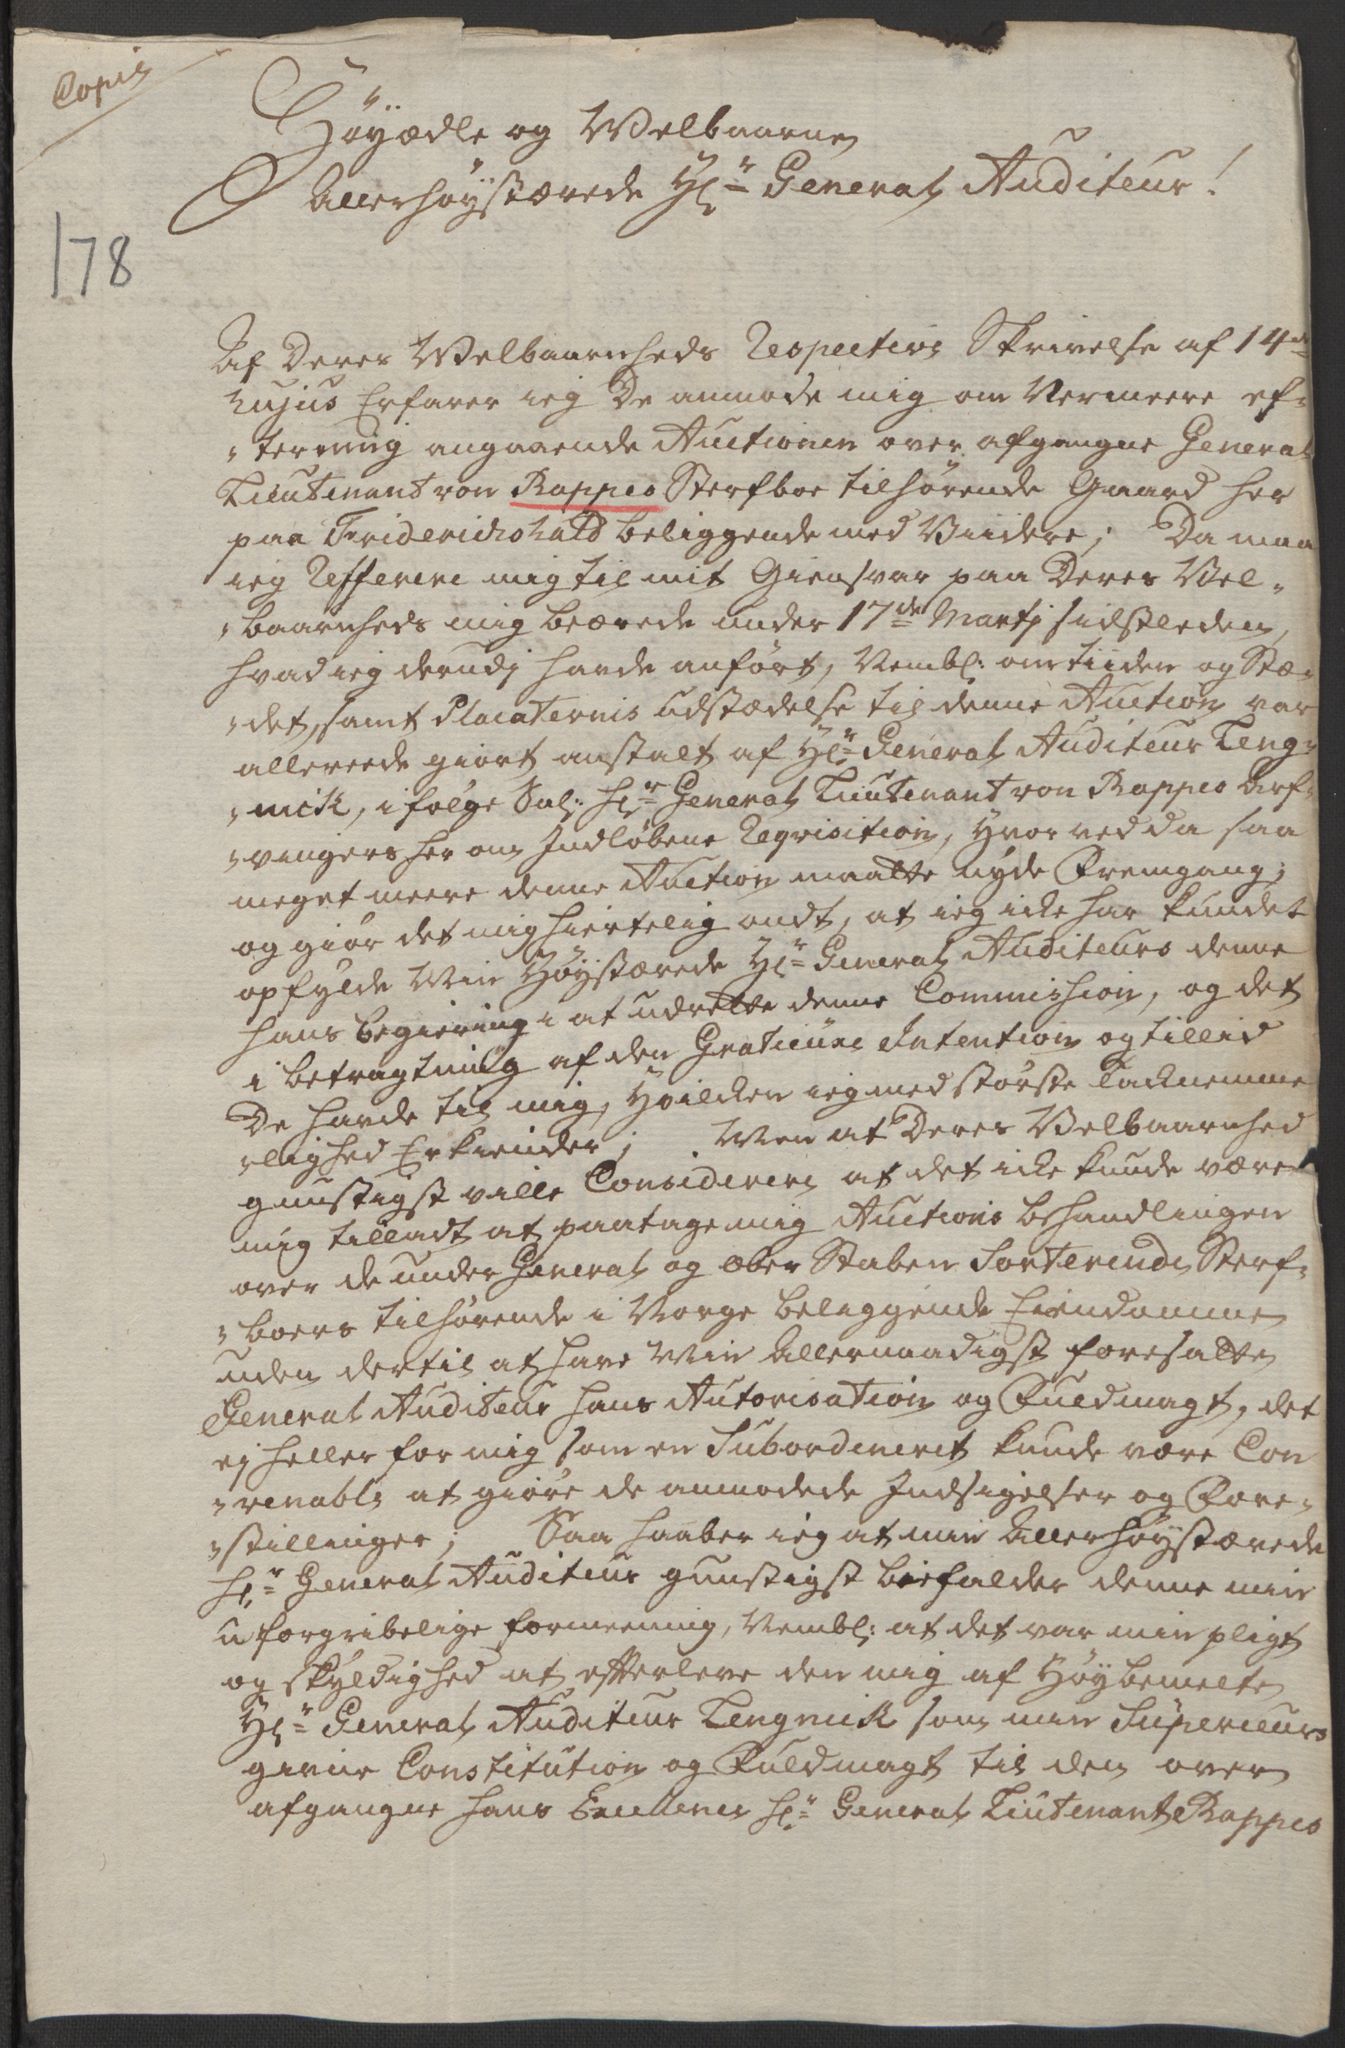 Copie
Höyædle og Welbaarne
Allerhöystærede Hr. General Auditeur!
178
Af Deres Welbaarnheds Respective Skrivelse af 14de
hujus Erfarer ieg De anmode mig om Nermeere ef-
-terretning angaaende Auctionen over afgangne General
Lieutenant von Rappes Sterfboe tilhørende Gaard her
paa Friderichshald beliggende med Viidere; Da maa
ieg Refferere mig til mit Giensvar paa Deres Vel-
-baarnheds mig beærede under 17de Martj sidstleden,
hvad ieg derudj havde anført, Nembl: om tiiden og Stæ-
-det, samt Placaternis udstædelse til denne Auction var
allereede giort anstalt af Hr. General Auditeur Teng-
-nick, i følge Sal: Hr. General Lieutenant von Rappes Arf-
-vingers her om Indløbene Reqvisition, Hvor ved da saa
meget meere denne Auction maatte nyde Fremgang;
og giør det mig hiertelig ondt, at ieg icke har kundet
opfylde Min Höystærede Hr. General Auditeurs denne
hans begiering i at udrette denne Commission, og det
i betragtning af den Gratieuse Intention og tillid
De havde til mig, Hvilcken ieg med største Tacknemme
-lighed Erkiender; Men at Deres Velbaarnhed
gunstigst ville Considerere at det icke kunde være
mig tilladt at paatage mig Auctions behandlingen
over de under General og Ober Staben Sorterende Sterf-
-boers tilhørende i Norge beliggende Eiendomme
uden dertil at have Min Allernaadigst foresatte
General Auditeur hans Autorisation og Fuldmagt, det
ej heller for mig som en Subordineret kunde være Con
-venable at giøre de anmodede Indsigelser og Fore-
-stillinger; Saa haaber ieg at min Allerhöystærede
Hr. General Auditeur gunstigst biefalder denne min
uforgribelige formeening, Nembl: at det var min pligt
og skyldighed at efterleve den mig af Höybemelte
Hr. General Auditeur Tengnick som min Superieurs
givne Constitution og Fuldmagt til den over
afgangne Hans Excellence Hr. General Lieutenant Rappes